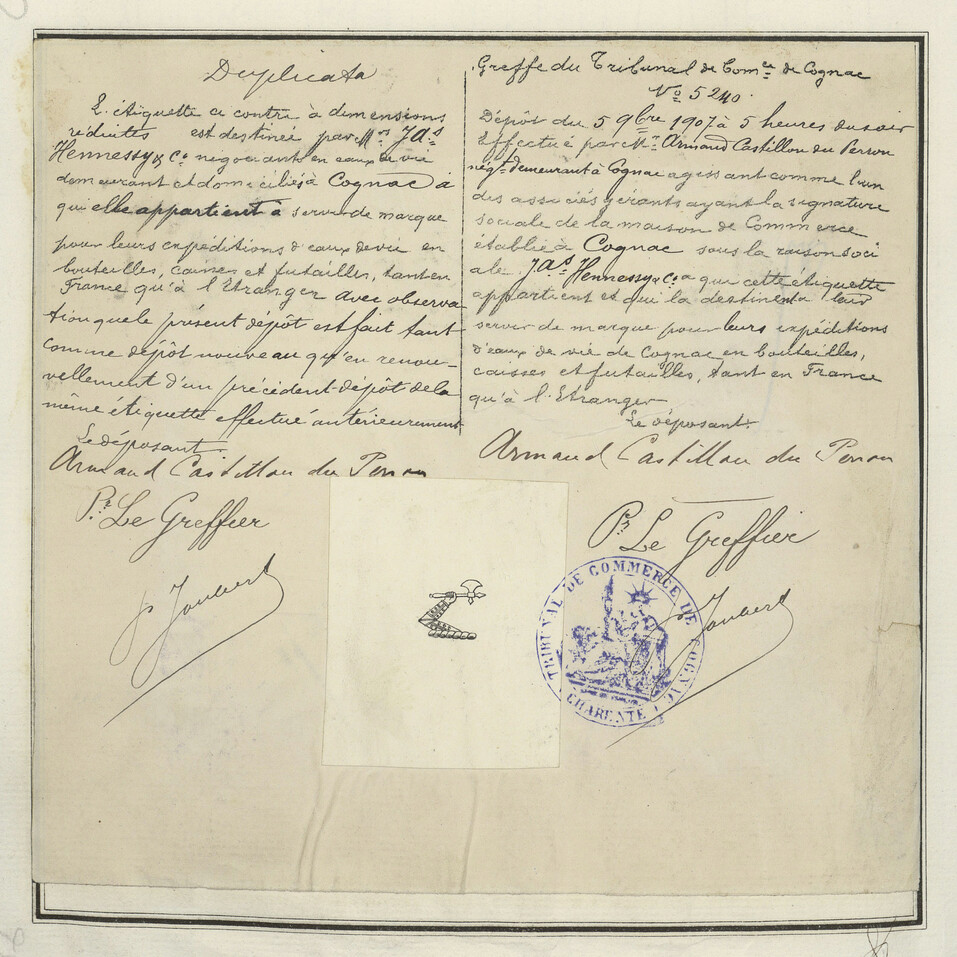 Duplicata
L'étiquette ci contre à dimensions
réduites est destinée par Mrs Jas
Hennessy & Co négociants en eaux de vie
demeurant et domiciliés à Cognac à
qui elle appartient à servir de marque
pour leurs expéditions d'eaux de vie en
bouteilles, caisses et futailles, tant en
France qu'à l'Etranger avec observa-
tion que le présent dépôt est fait tant
comme dépôt nouveau qu'en renou-
vellement d'un précédent dépôt de la
même étiquette effectué antérieurement
Le déposant.
Armand Castillon du Perron
Pr Le Greffier
Joubert
Greffe du Tribunal de Comce de Cognac
No 5240.
Dépôt du 5 9bre 1907 à 5 heures du soir
Effectué par Mr Armand Castillon du Perron
négt demeurant à Cognac agissant comme l'un
des associés gérants ayant la signature
sociale de la maison de Commerce
établie à Cognac sous la raison soci
ale Jas Hennessy & Co a que cette étiquette
appartient et qui la destinent à leur
servir de marque pour leurs expéditions
d'eaux de vie de Cognac en bouteilles,
caisses et futailles, tant en France
qu'à l'Etranger
Le déposant.
Armand Castillon du Perron
Pr Le Greffier
Joubert
TRIBUNAL DE COMMERCE DE COGNAC
CHARENTE